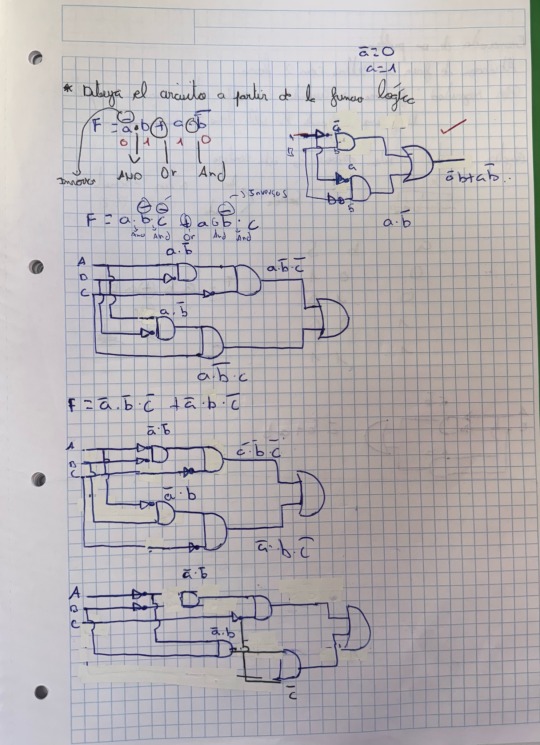 ā = 0
a = 1
* Dibuja el circuito a partir de la función lógica
F = ā·b + a·b̄
0 1 1 0
AND Or And
Inversor
A
B
ā
b
a
b̄
āb + ab̄
→ Inversos
F = a·b̄·c̄ + a·b̄·c
And And Or And And
a·b̄
a·b̄
A
B
C
a·b̄·c̄
a·b̄
a·b̄·c
F = ā·b̄·c̄ + ā·b·c̄
ā·b̄
A
B
C
c̄·b̄·c̄
ā·b
ā·b·c̄
ā·b̄
A
B
C
ā·b
c̄